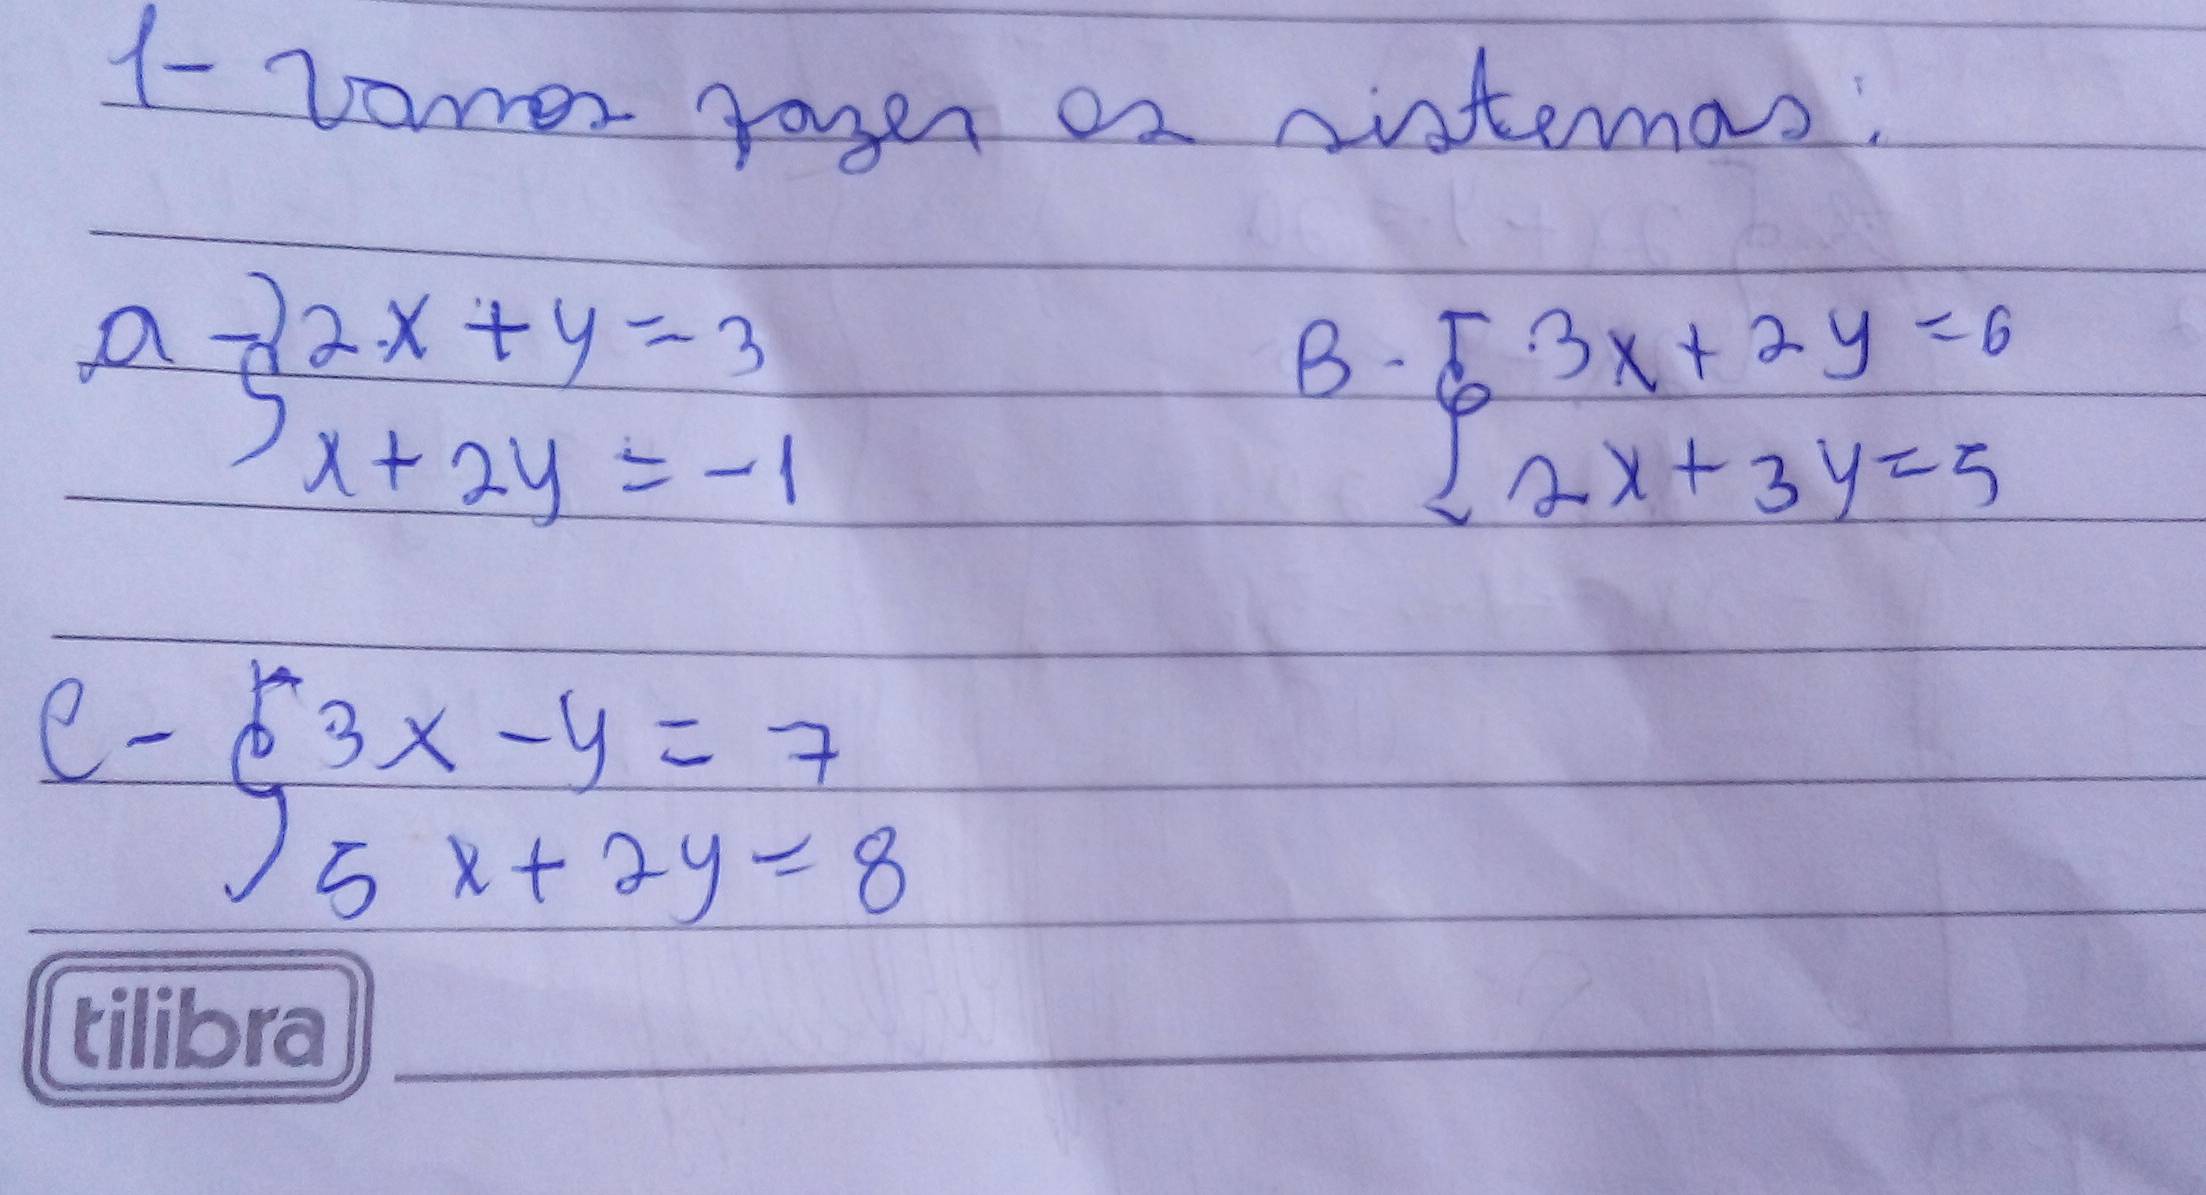 1- Vamos fazer os sistemas:
a - { 2x + y = 3
x + 2y = -1
B - { 3x + 2y = 6
2x + 3y = 5
C - { 3x - y = 7
5x + 2y = 8
tilibra